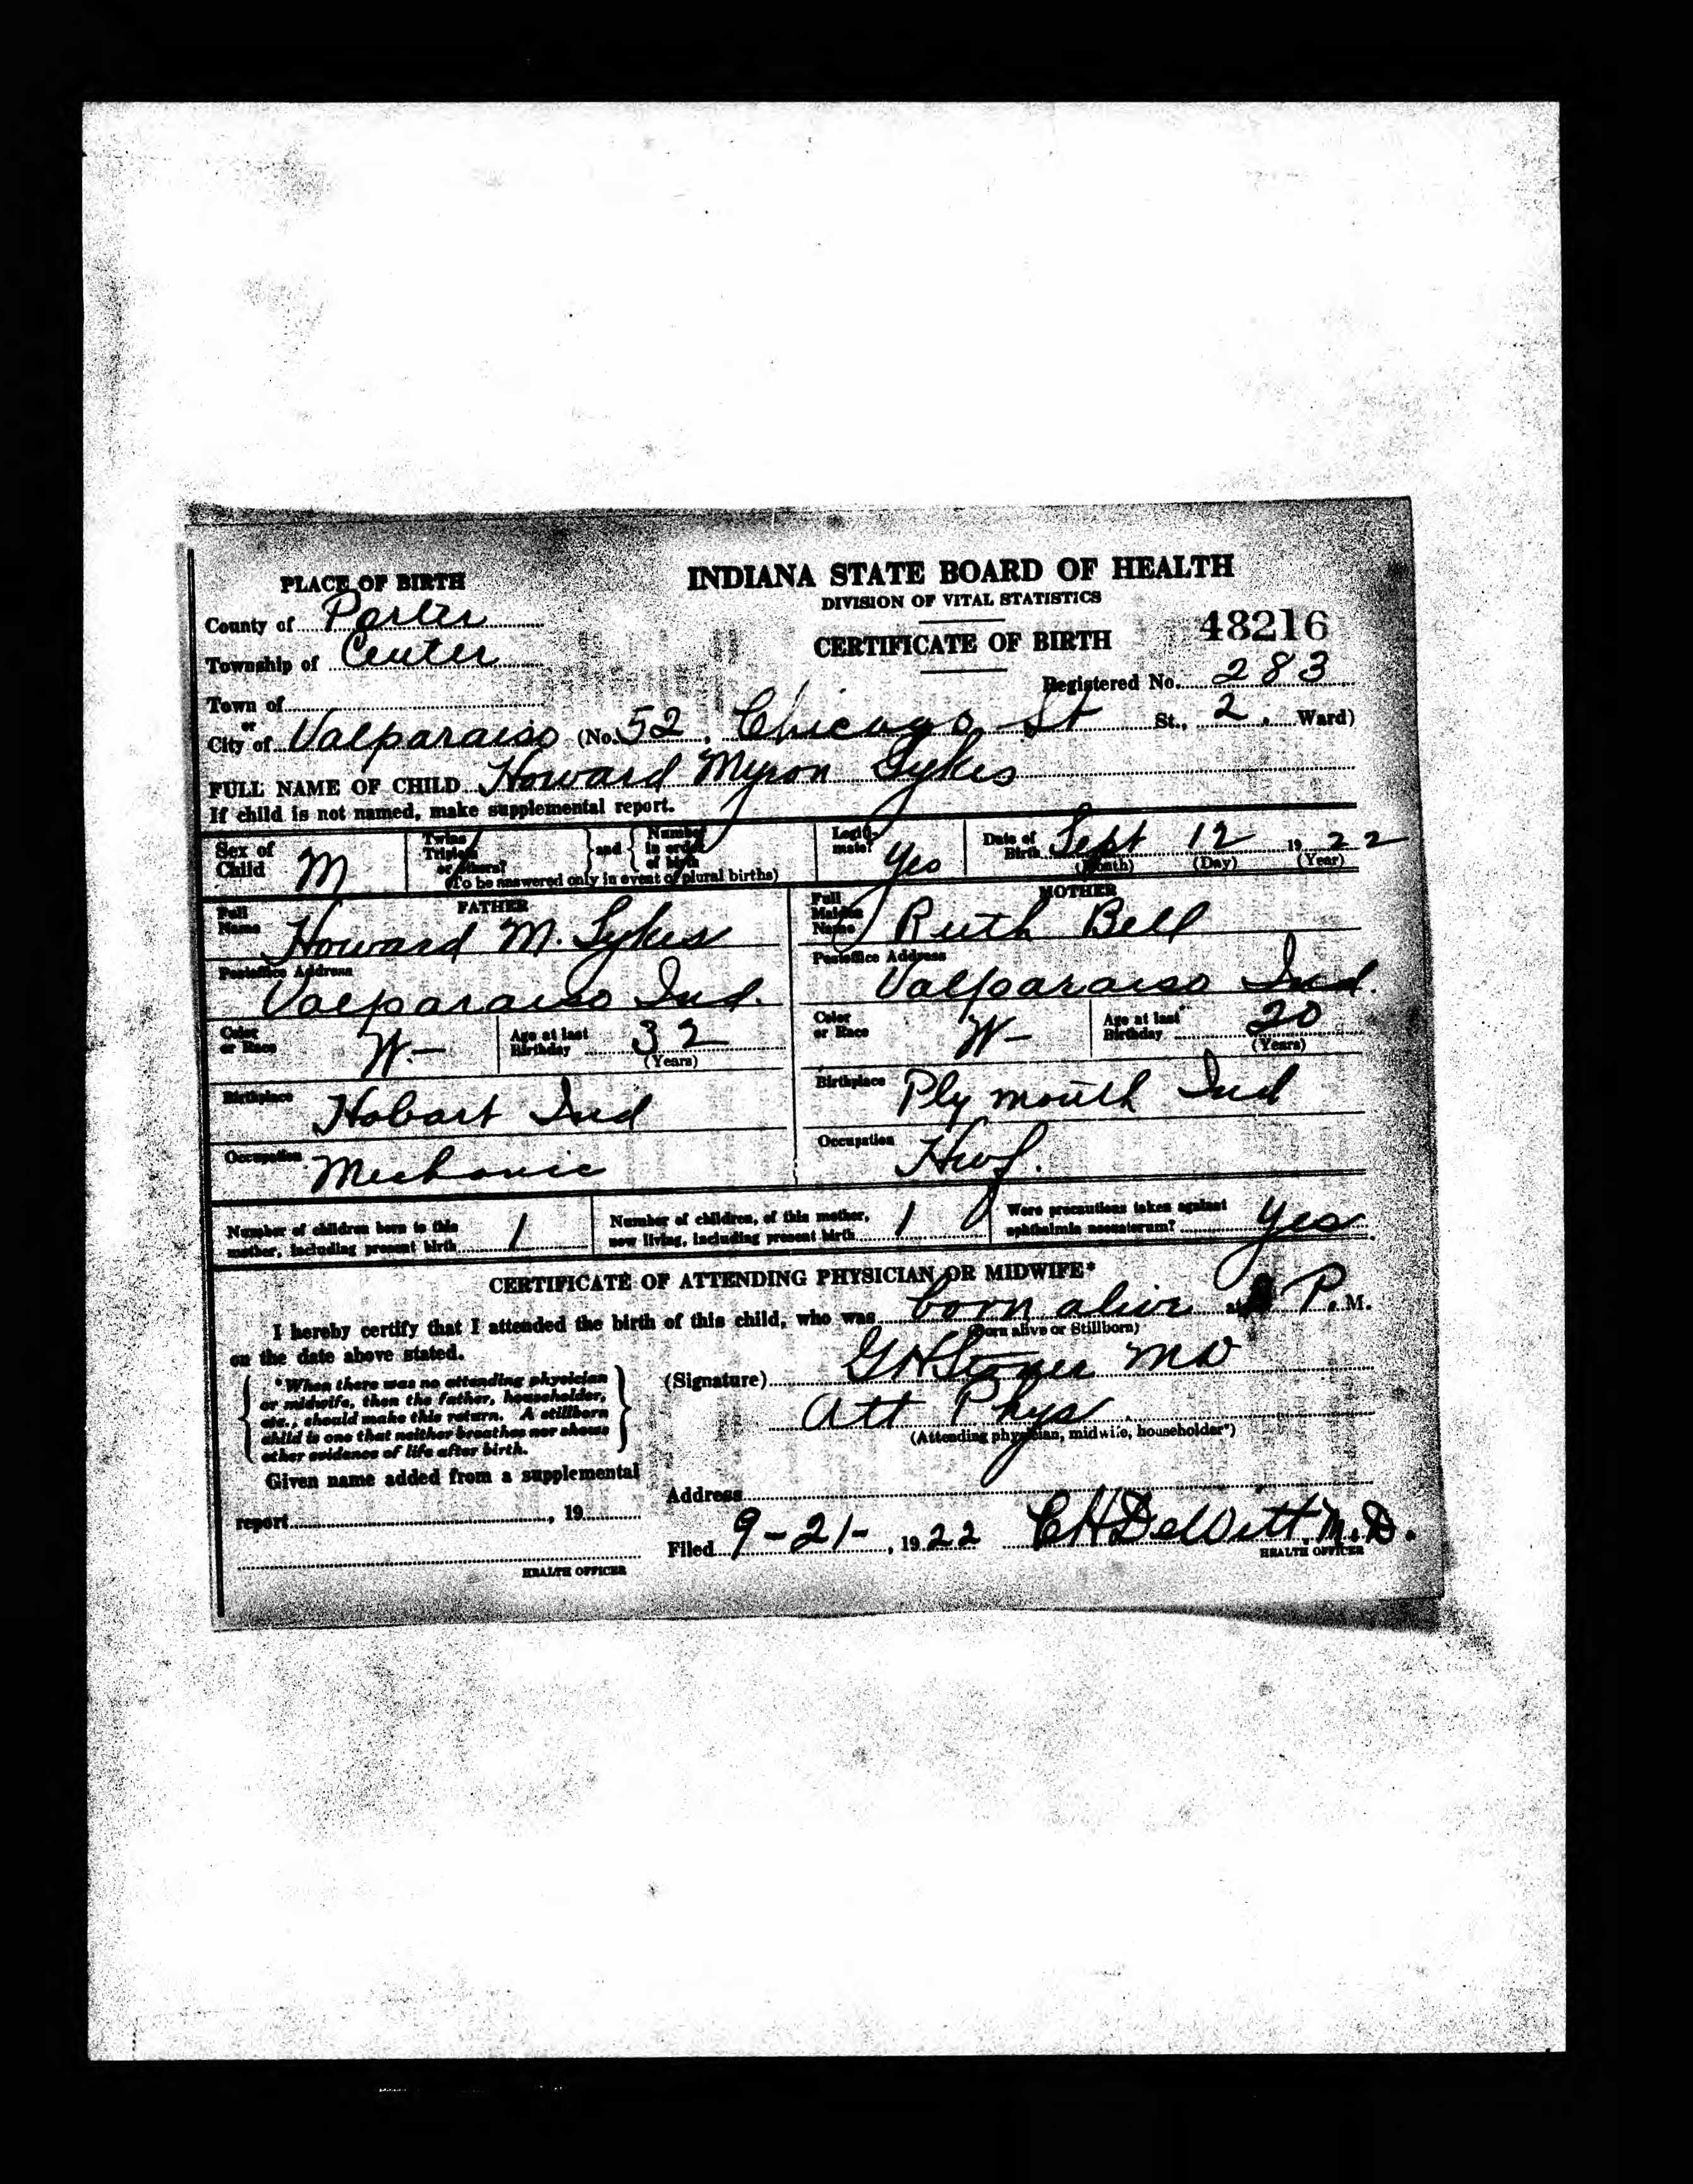 PLACE OF BIRTH
INDIANA STATE BOARD OF HEALTH
DIVISION OF VITAL STATISTICS
County of Porter
CERTIFICATE OF BIRTH
48216
Township of Center
Registered No. 283
Town of
or
City of Valparaiso (No. 52, Chicago St St., 2. Ward)
FULL NAME OF CHILD Howard Myron Sykes
If child is not named, make supplemental report.
Sex of Child M
Twins Triplets or others? and Number in order of birth
(To be answered only in event of plural births)
Legitimate? Yes
Date of Birth Sept 12 1922
(Month) (Day) (Year)
FATHER
Full Name Howard M. Sykes
MOTHER
Full Maiden Name Ruth Bell
Postoffice Address
Valparaiso Ind.
Postoffice Address
Valparaiso Ind.
Color or Race W.-
Age at last Birthday 32
(Years)
Color or Race W-
Age at last Birthday 20
(Years)
Birthplace Hobart Ind
Birthplace Plymouth Ind
Occupation Mechanic
Occupation Hwf.
Number of children born to this mother, including present birth 1
Number of children, of this mother, now living, including present birth 1
Were precautions taken against ophthalmia neonatorum? Yes
CERTIFICATE OF ATTENDING PHYSICIAN OR MIDWIFE*
I hereby certify that I attended the birth of this child, who was born alive at P. M.
(Born alive or Stillborn)
on the date above stated.
*When there was no attending physician
or midwife, then the father, householder,
etc., should make this return. A stillborn
child is one that neither breathes nor shows
other evidence of life after birth.
(Signature) G H Stoner MD
Att Phys
(Attending physician, midwife, householder*)
Given name added from a supplemental
report , 19
Address
Filed 9-21-, 1922 C H DeWitt, M.D.
HEALTH OFFICER
HEALTH OFFICER